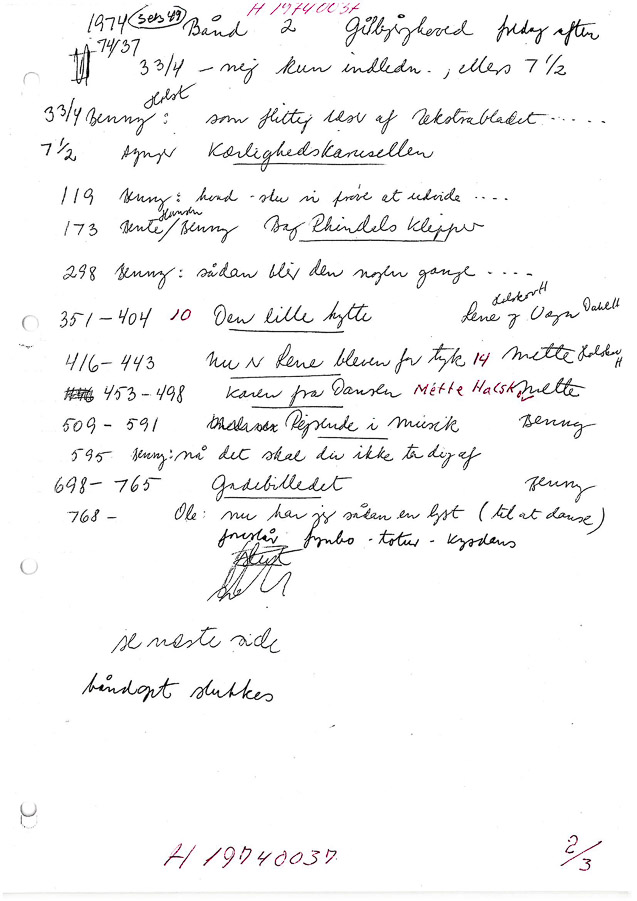 H 19740037
1974 Bånd 2 Gilbjerghoved fredag aften
74/37
3 3/4 – nej kun indledn., ellers 7 1/2
Holst
3 3/4 Benny: som flittig læser af Ekstrabladet .....
7 1/2 synger Kærlighedskarusellen
119 Benny: hvad skal vi prøve at udvide ....
173 Bente/Benny Bag Rhindels Klipper
298 Benny: sådan blir den nogen gange ....
351–404 10 Den lille hytte Lene og Vagn Dahell
416–443 Nu er Lene bleven for tyk 14 Mette
453–498 Karen fra Dansen Mette Halsk Mette
509–591 Rejsende i musik Benny
595 Benny: nå det skal du ikke ta dig af
698–765 Gadebilledet Benny
768– Ole: nu har jeg sådan en lyst (til at danse)
foreslår fynbo - totur - kysdans
se næste side
båndopt slukkes
H 19740037
2/3